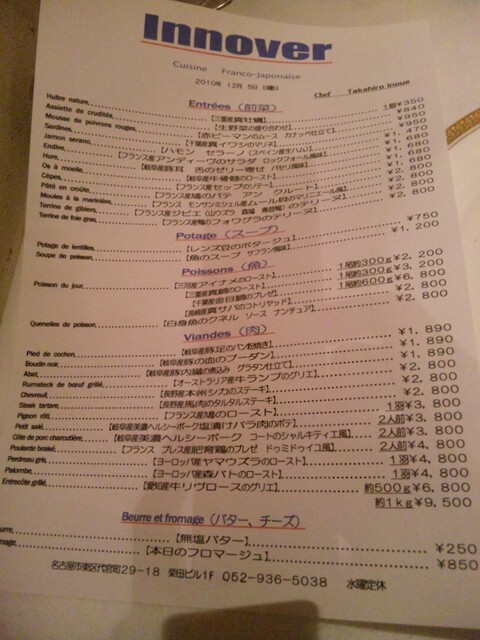 Innover
Cuisine Franco-Japonaise
2010年 12月 5日 日曜日
Chef Takehiro Inoue
Entrées (前菜)
Huitre nature 【三重産真牡蠣】 1個¥350
Assiette de crudités 【生野菜の盛り合わせ】 ¥840
Mousse de poivrons rouges 【赤ピーマンのムース カナッペ仕立て】 ¥950
Sardines 【千葉産真イワシのマリネ】 ¥950
Jamon serano 【ハモン セラーノ (スペイン産生ハム)】 ¥1, 470
Endive 【フランス産アンディーヴのサラダ ロックフォール風味】 ¥1, 680
Hure 舌のゼリー寄せ パセリ風味】 ¥1, 680
Os à moelle 【岐阜産牛骨髄のロースト】
Cèpes 【フランス産セップのソテー】
Pâté en croûte 【フランス産鳩のパテ アン クルート】
Moules à la marinière 【フランス モンサンミシェル産ムール貝のマリニエール風】
Terrine de gibiers 【フランス産ジビエ のテリーヌ】 ¥2, 800
Terrine de foie gras 【フランス産鴨のフォワグラのテリーヌ】 ¥2, 800
Potage (スープ)
Potage de lentilles 【レンズ豆のポタージュ】 ¥750
Soupe de poisson 【魚のスープ サフラン風味】 ¥1, 200
Poissons (魚)
Poisson du jour 【三河産アイナメのロースト】 1尾約300g¥2, 200
【三重産真鯛のロースト】 1尾約300g¥3, 200
【千葉産金目鯛のブレゼ】 1尾約600g¥6, 800
【長崎産真サバのコトリヤッド】 ¥2, 800
Quenelles de poisson 【白身魚のクネル ソース ナンチュア】 ¥2, 800
Viandes (肉)
Pied de cochon 【岐阜産豚足のパン粉焼き】 ¥1, 890
Boudin noir 【岐阜産豚の血のブーダン】 ¥1, 890
Abat 【岐阜産豚内臓の煮込み グラタン仕立て】 ¥1, 890
Rumsteck de bœuf grillé 【オーストラリア産牛ランプのグリエ】 ¥2, 800
Chevreuil 【長野産本州シカのステーキ】 ¥2, 800
Steak tartare 【長野産馬肉のタルタルステーキ】 ¥2, 800
Pigeon rôti 【フランス産鳩のロースト】 1羽¥3, 800
Petit salé 【岐阜産美濃ヘルシーポーク塩漬けバラ肉のポテ】 2人前¥3, 800
Côte de porc charcutière 【岐阜産美濃ヘルシーポーク コートのシャルキティエ風】 2人前¥3, 800
Poularde braisé 【フランス ブレス産肥育鶏のブレゼ ドゥミドゥイユ風】 2人前¥4, 800
Perdreau gris 【ヨーロッパ産ヤマウズラのロースト】 1羽¥4, 800
Palombe 【ヨーロッパ産森バトのロースト】 1羽¥4, 800
Entrecôte grillé 【愛知産牛リヴロースのグリエ】 約500g¥6, 800
約1kg¥9, 500
Beurre et fromage (バター、チーズ)
【無塩バター】 ¥250
【本日のフロマージュ】 ¥850
名古屋市東区代官町29-18 柴田ビル1F 052-936-5038 水曜定休